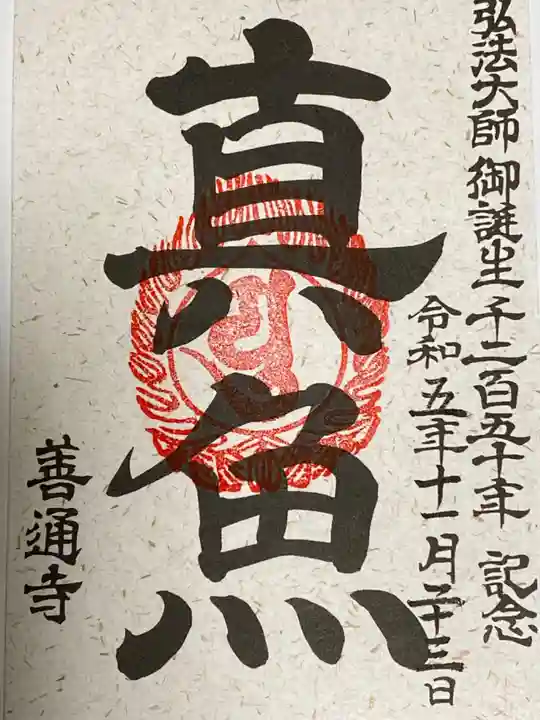 弘法大師御誕生千二百五十年 記念
令和五年十一月二十三日
真魚
善通寺